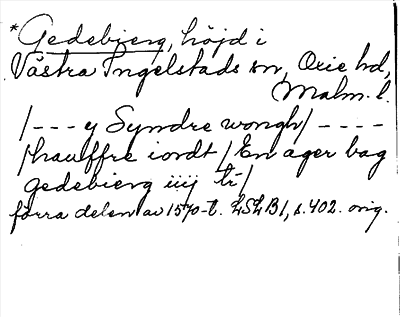 *Gedebierg, höjd i
Västra Ingelstads sn, Oxie hd,
Malm. l.
/--- y Syndre wongh/ ----
/hauffre iordt/ En ager bag
gedebierg iiij tr/
förra delen av 1570-t. LSLB1, s. 402. orig.